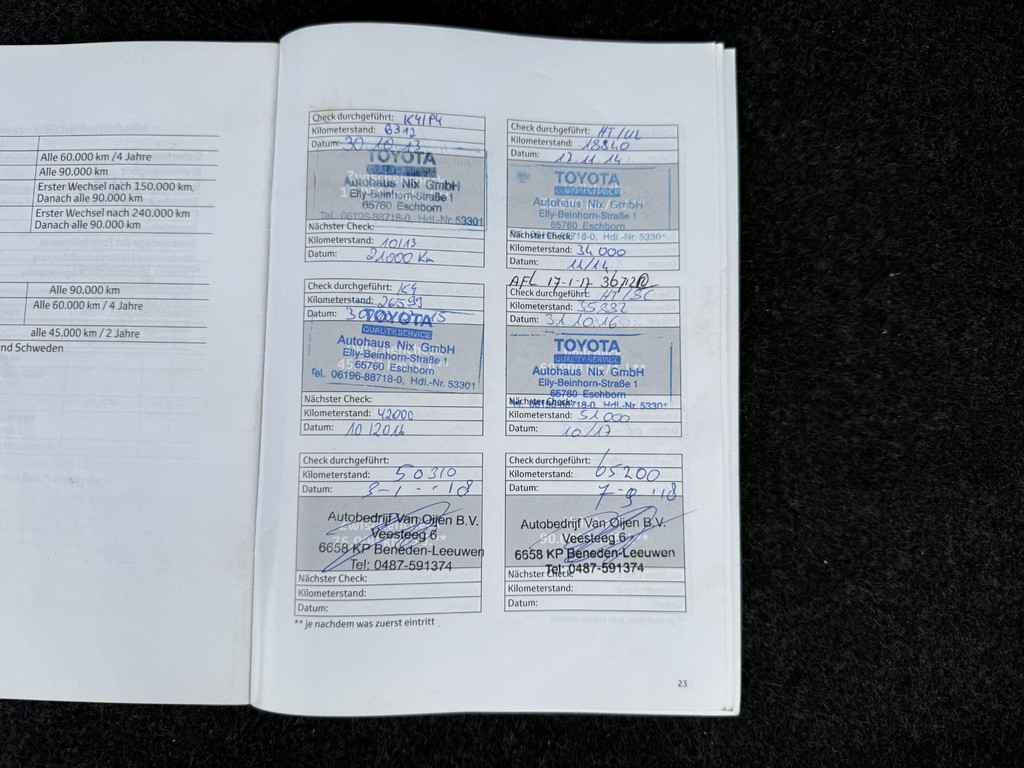 Alle 60.000 km /4 Jahre
Alle 90.000 km
Erster Wechsel nach 150.000 km,
Danach alle 90.000 km
Erster Wechsel nach 240.000 km
Danach alle 90.000 km
Alle 90.000 km
Alle 60.000 km / 4 Jahre
alle 45.000 km / 2 Jahre
nd Schweden
Check durchgeführt: K4/P4
Kilometerstand: 6312
Datum: 30.10.13
TOYOTA
Autohaus Nix GmbH
Elly-Beinhorn-Straße 1
65760 Eschborn
Tel. 06196-88718-0, Hdl.-Nr. 53301
Nächster Check:
Kilometerstand: 10/13
Datum: 21000 Km
Check durchgeführt: HT/UL
Kilometerstand: 18840
Datum: 12.11.14
TOYOTA
QUALITY SERVICE
Autohaus Nix GmbH
Elly-Beinhorn-Straße 1
65760 Eschborn
06196-88718-0, Hdl.-Nr. 5330
Nächster Check:
Kilometerstand: 34000
Datum: 11/14
AFL 17-1-17
Check durchgeführt: K4
Kilometerstand: 26599
Datum: 30 15
TOYOTA
QUALITY SERVICE
Autohaus Nix GmbH
Elly-Beinhorn-Straße 1
65760 Eschborn
Tel. 06196-88718-0, Hdl.-Nr. 53301
Nächster Check:
Kilometerstand: 42000
Datum: 10/2016
Check durchgeführt: HT/SC
Kilometerstand: 35332
Datum: 31.10.16
TOYOTA
QUALITY SERVICE
Autohaus Nix GmbH
Elly-Beinhorn-Straße 1
65760 Eschborn
Tel. 06196-88718-0, Hdl.-Nr. 53301
Nächster Check:
Kilometerstand: 51000
Datum: 10/17
Check durchgeführt:
Kilometerstand: 50310
Datum: 3-1-18
Autobedrijf Van Oijen B.V.
Veesteeg 6
6658 KP Beneden-Leeuwen
Tel: 0487-591374
Nächster Check:
Kilometerstand:
Datum:
Check durchgeführt:
Kilometerstand: 65200
Datum: 7-9-'18
Autobedrijf Van Oijen B.V.
Veesteeg 6
6658 KP Beneden-Leeuwen
Tel: 0487-591374
Nächster Check:
Kilometerstand:
Datum:
** je nachdem was zuerst eintritt
23